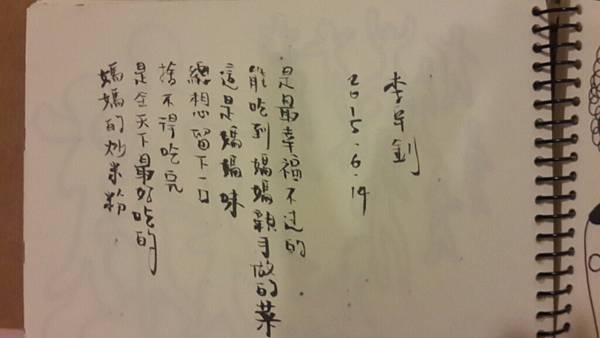 媽媽的炒米粉
是全天下最好吃的
捨不得吃完
總想留下一口
這是媽媽味
能吃到媽媽親手做的菜
是最幸福不过的
2015.6.14
李